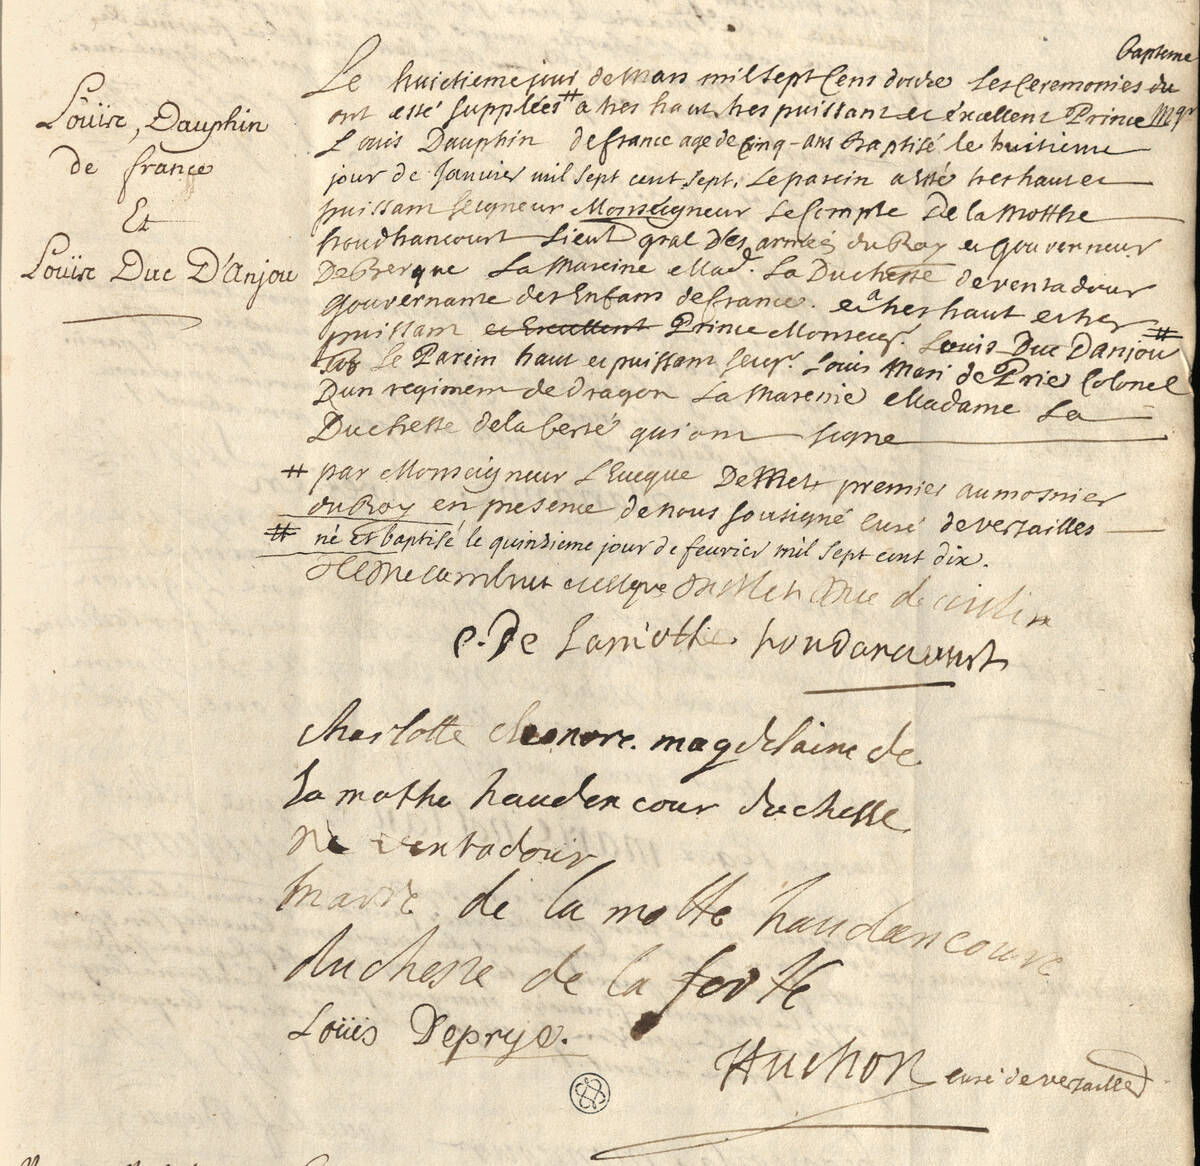 Loüis, Dauphin
de france
Et
Loüis Duc D'Anjou
bapteme
Le huictieme jour de Mars mil sept Cens douze Les Ceremonies du
ont esté supplées # a tres haut, tres puissant et éxcellent Prince Mgr
Louis Dauphin de france agé de Cinq-ans Baptisé le huitieme
jour de Janvier mil sept cent sept, Le parein a esté tres haut et
puissant seigneur Monseigneur Le Compte De la Motthe
houdhancourt Lieut gral Des armées du Roy et Gouverneur
De Bergue La Mareine Mad. La Duchesse de ventadour
Gouvernante des Enfans de france. et a tres haut et tres
puissant et Excellent Prince Monseigr. Louis Duc D'anjou #
Le Parein haut et puissant seigr. Louis Mari de Prie Colonel
D'un regiment de dragon La Mareine Madame La
Duchesse de la ferté qui ont signe
# par Monseigneur L'Eveque De Metz premier aumosnier
du Roy en presence de nous soussigné curé de versailles
# né et baptisé le quinzieme jour de fevrier mil sept cent dix.
evesque de Metz duc de
C. De Lamothe houdancourt
charlotte eleonore magdelaine de
La mothe haudencour duchesse
de ventadour
marie de la motte haudencourt
duchesse de la ferte
Loüis Deprye.
Huchon curé de versailles